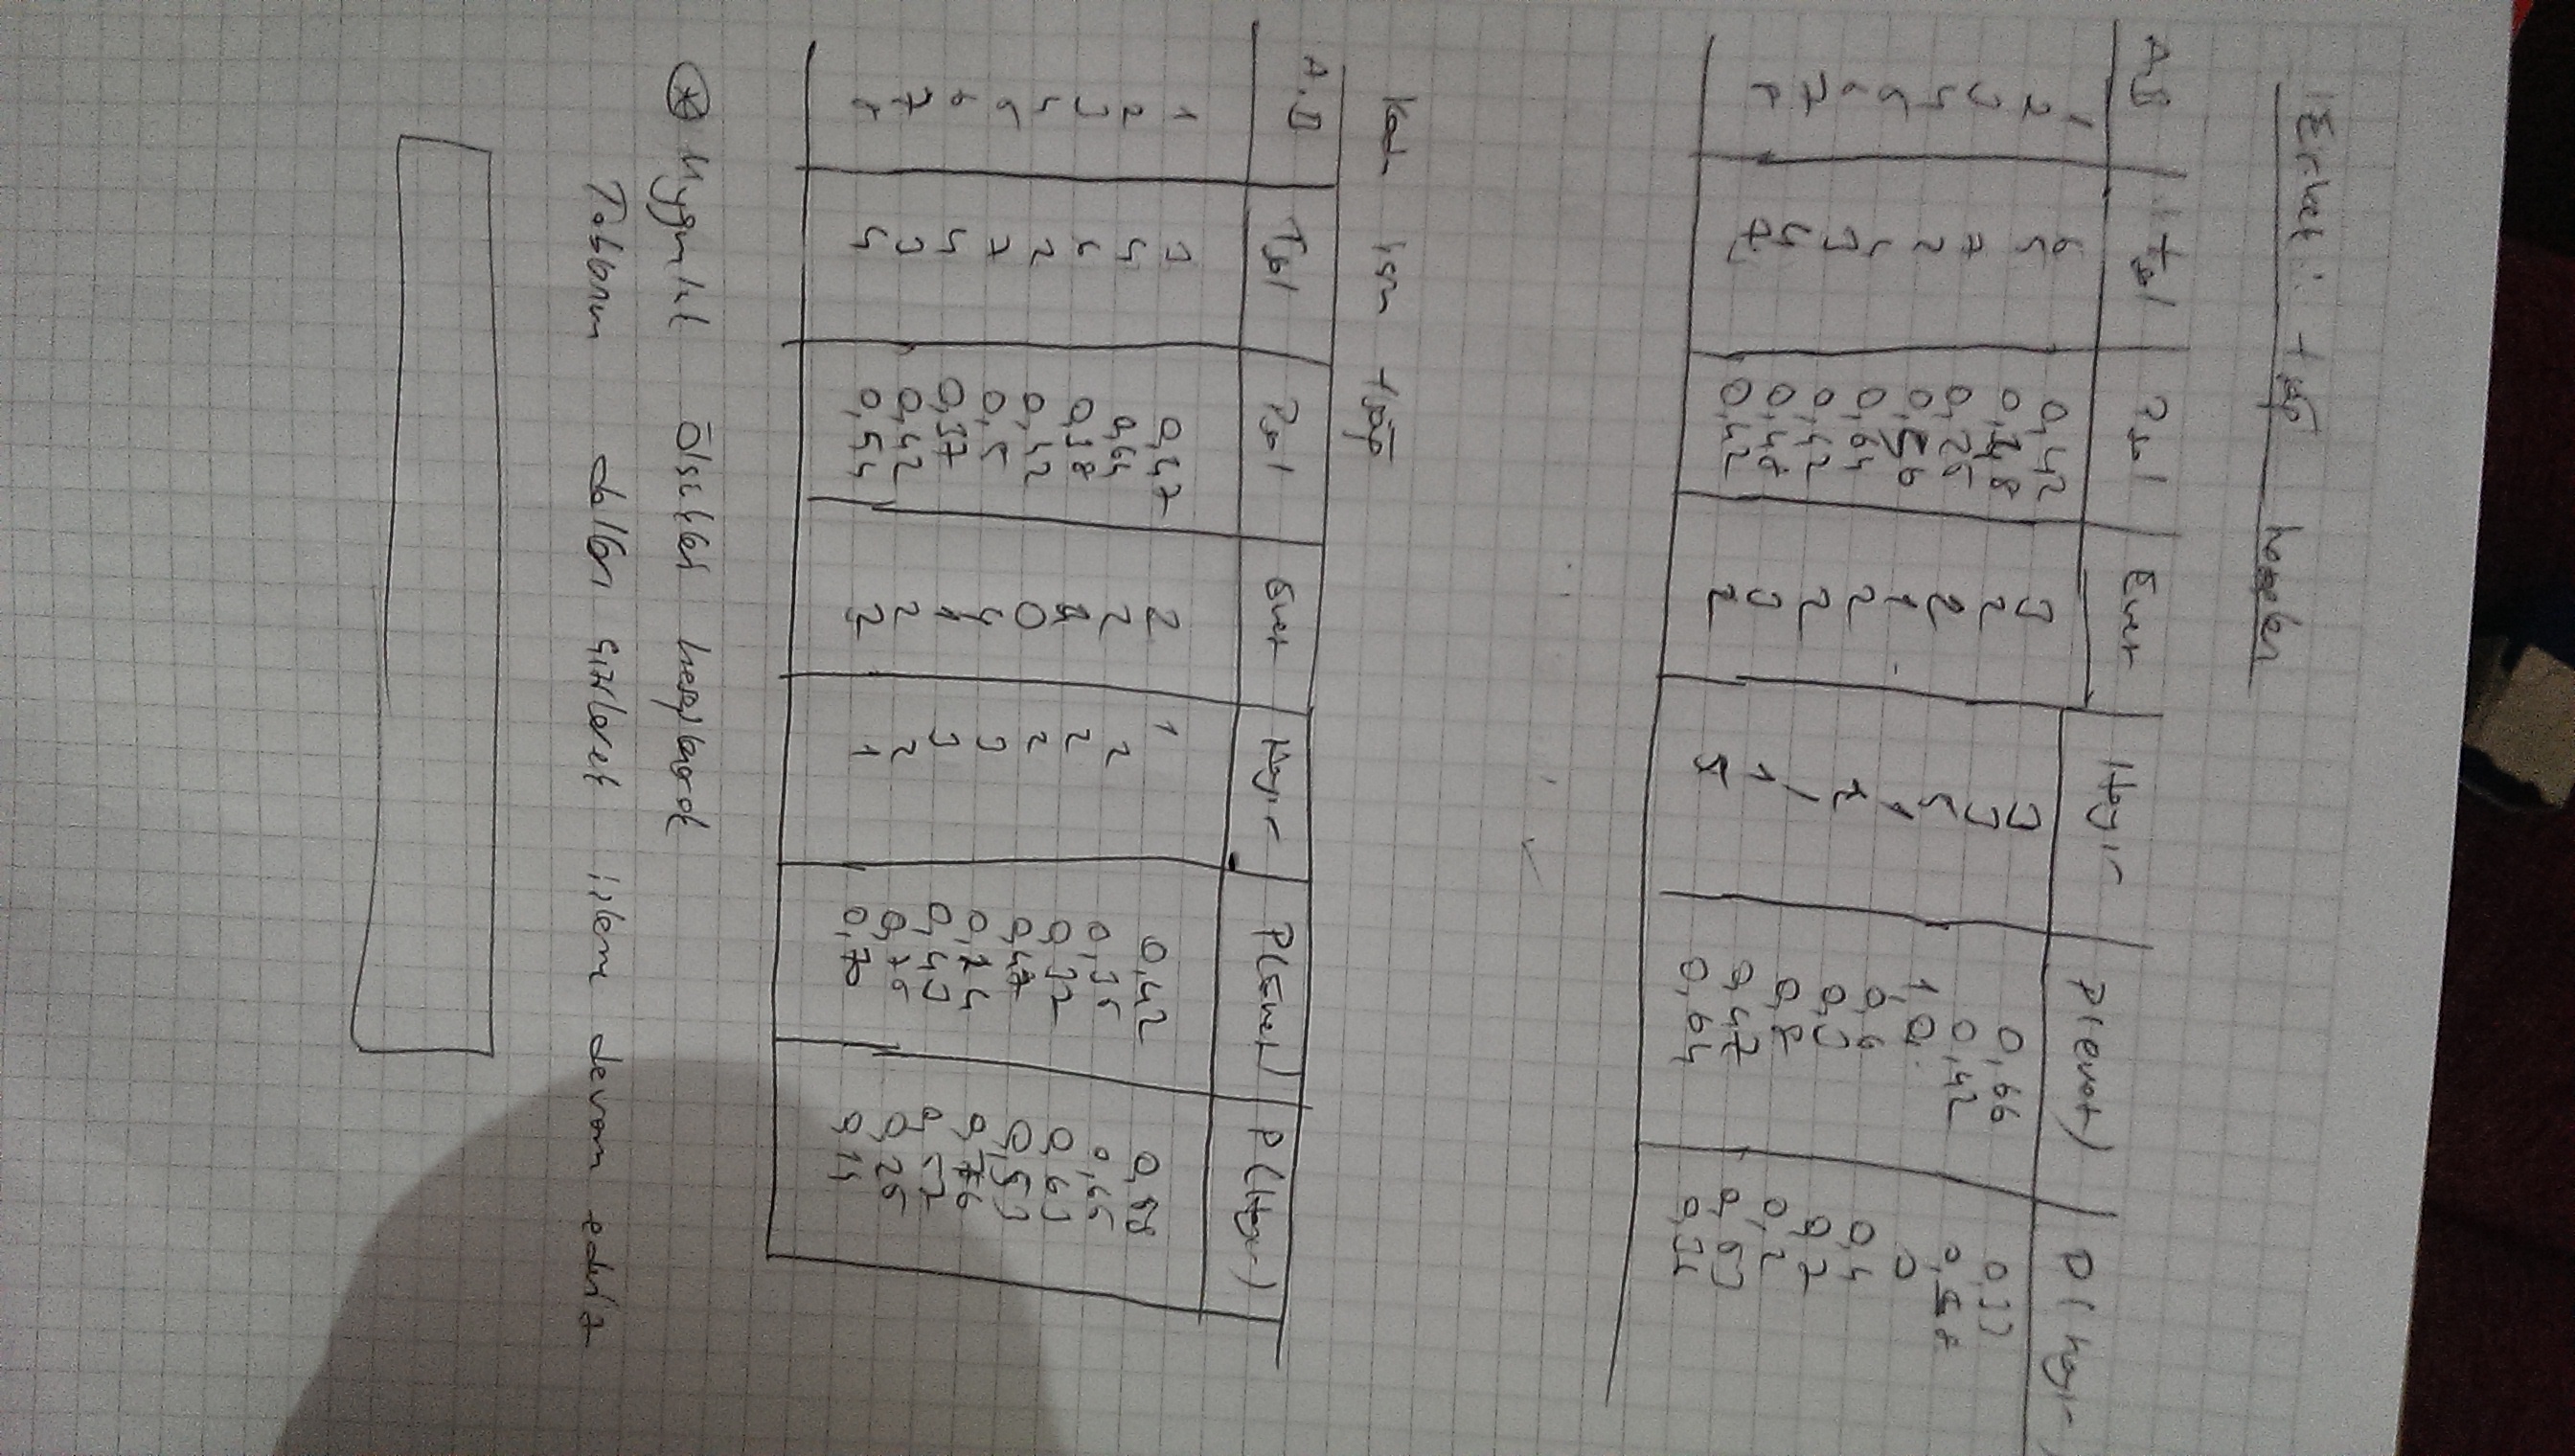 Erkek : + 1 grup hesapları
A.D | Tsol | Psol | Evet | Hayır | P(evet) | P(Hayır
1 | 6 | 0,42 | 3 | 3 | 0,66 | 0,33
2 | 5 | 0,48 | 2 | 3 | 0,42 | 0,58
3 | 7 | 0,26 | 2 | 5 | 1,0 | 0
4 | 2 | 0,56 | 1 | 1 | 0,6 | 0,4
5 | 4 | 0,64 | 2 | 2 | 0,2
6 | 3 | 0,42 | 2 | 1 | 0,8 | 0,2
7 | 4 | 0,48 | 3 | 1 | 0,47 | 0,63
8 | 7 | 0,42 | 2 | 5 | 0,64 | 0,34
A.D | Tsol | Psol | Evet | Hayır | P(Evet) | P(Hayır)
1 | 3 | 0,47 | 2 | 1 | 0,42 | 0,58
2 | 4 | 0,64 | 2 | 2 | 0,35 | 0,65
3 | 0,38 | 2 | 0,32 | 0,63
4 | 2 | 0,42 | 0 | 2 | 0,47 | 0,53
5 | 7 | 0,5 | 4 | 3 | 0,24 | 0,76
6 | 4 | 0,37 | 1 | 3 | 0,43 | 0,52
7 | 3 | 0,42 | 2 | 2 | 0,75 | 0,25
8 | 4 | 0,54 | 2 | 1 | 0,70 | 0,14
* Uygunluk Ölçütleri hesaplanarak
Tabloım dalları çizilerek işlem devam edilir